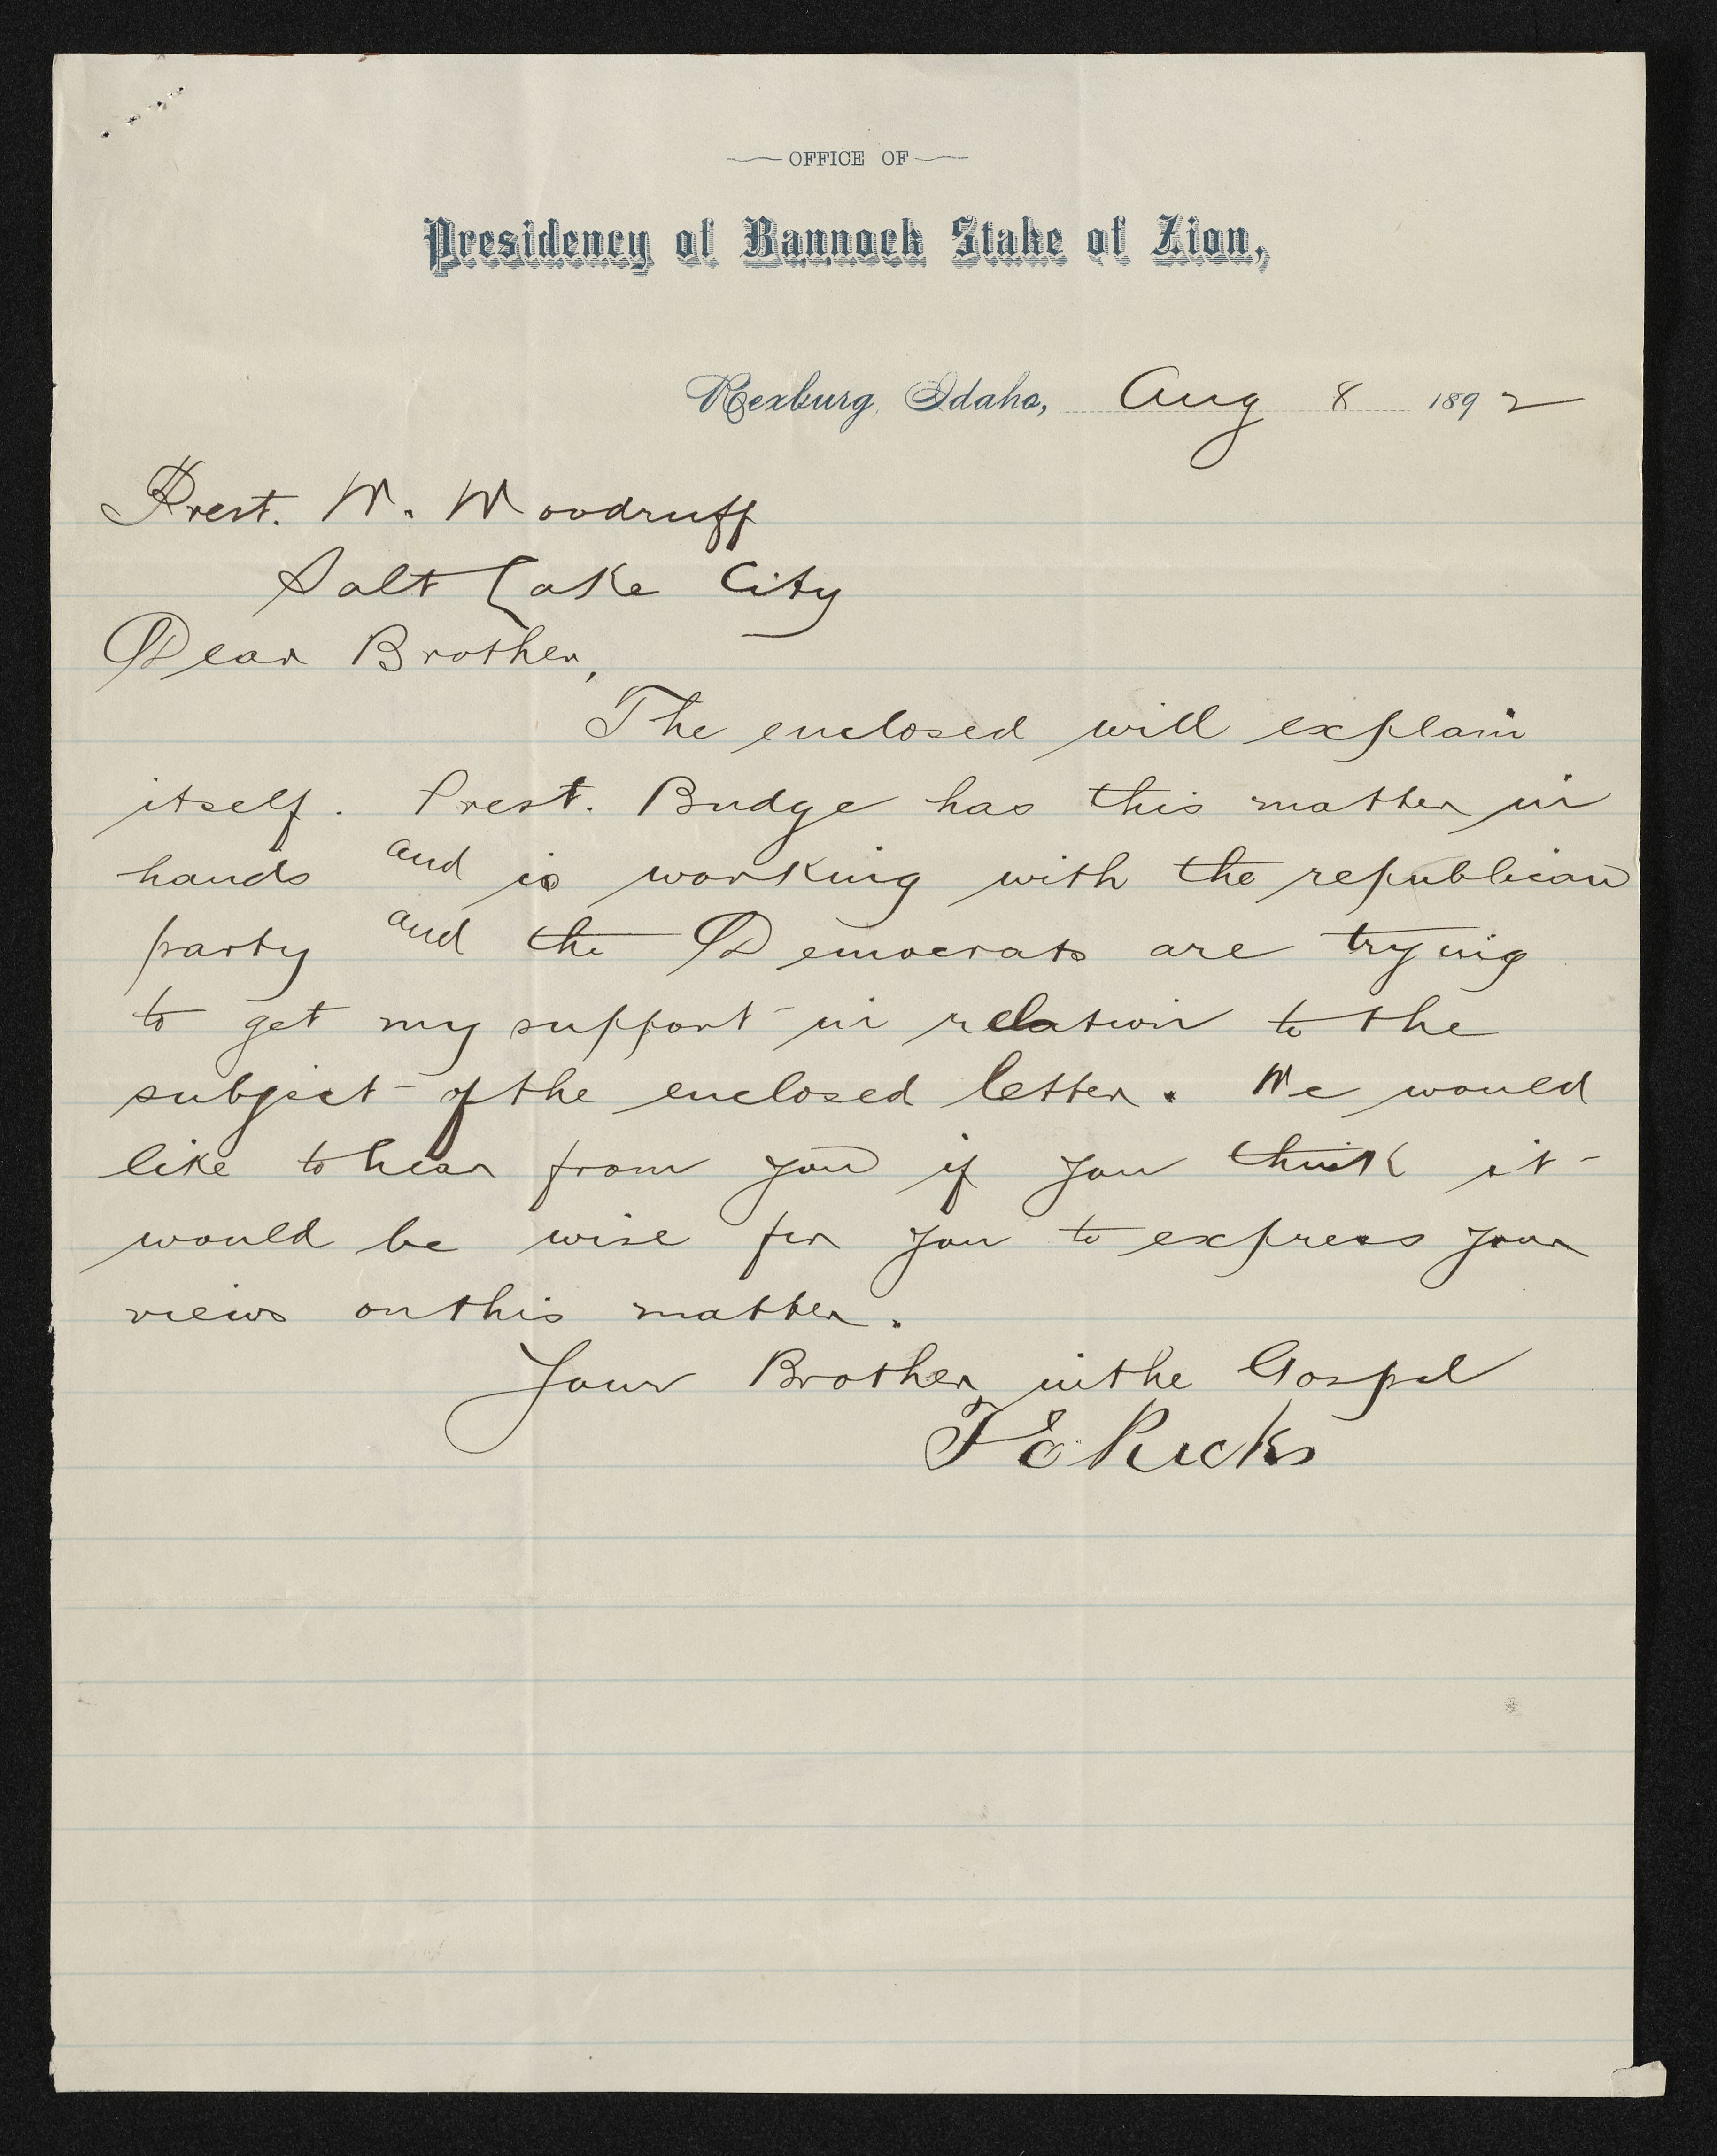 OFFICE OF
Presidency of Bannock Stake of Zion,
Rexburg, Idaho, Aug 8 1892
Prest. W. Woodruff
Salt Lake City
Dear Brother,
The enclosed will explain
itself. Prest. Budge has this matter in
hands and is working with the republican
party and the Democrats are trying
to get my support in relation to the
subject of the enclosed letter. We would
like to hear from you if you think it
would be wise for you to express your
views on this matter.
Your Brother in the Gospel
T E Ricks